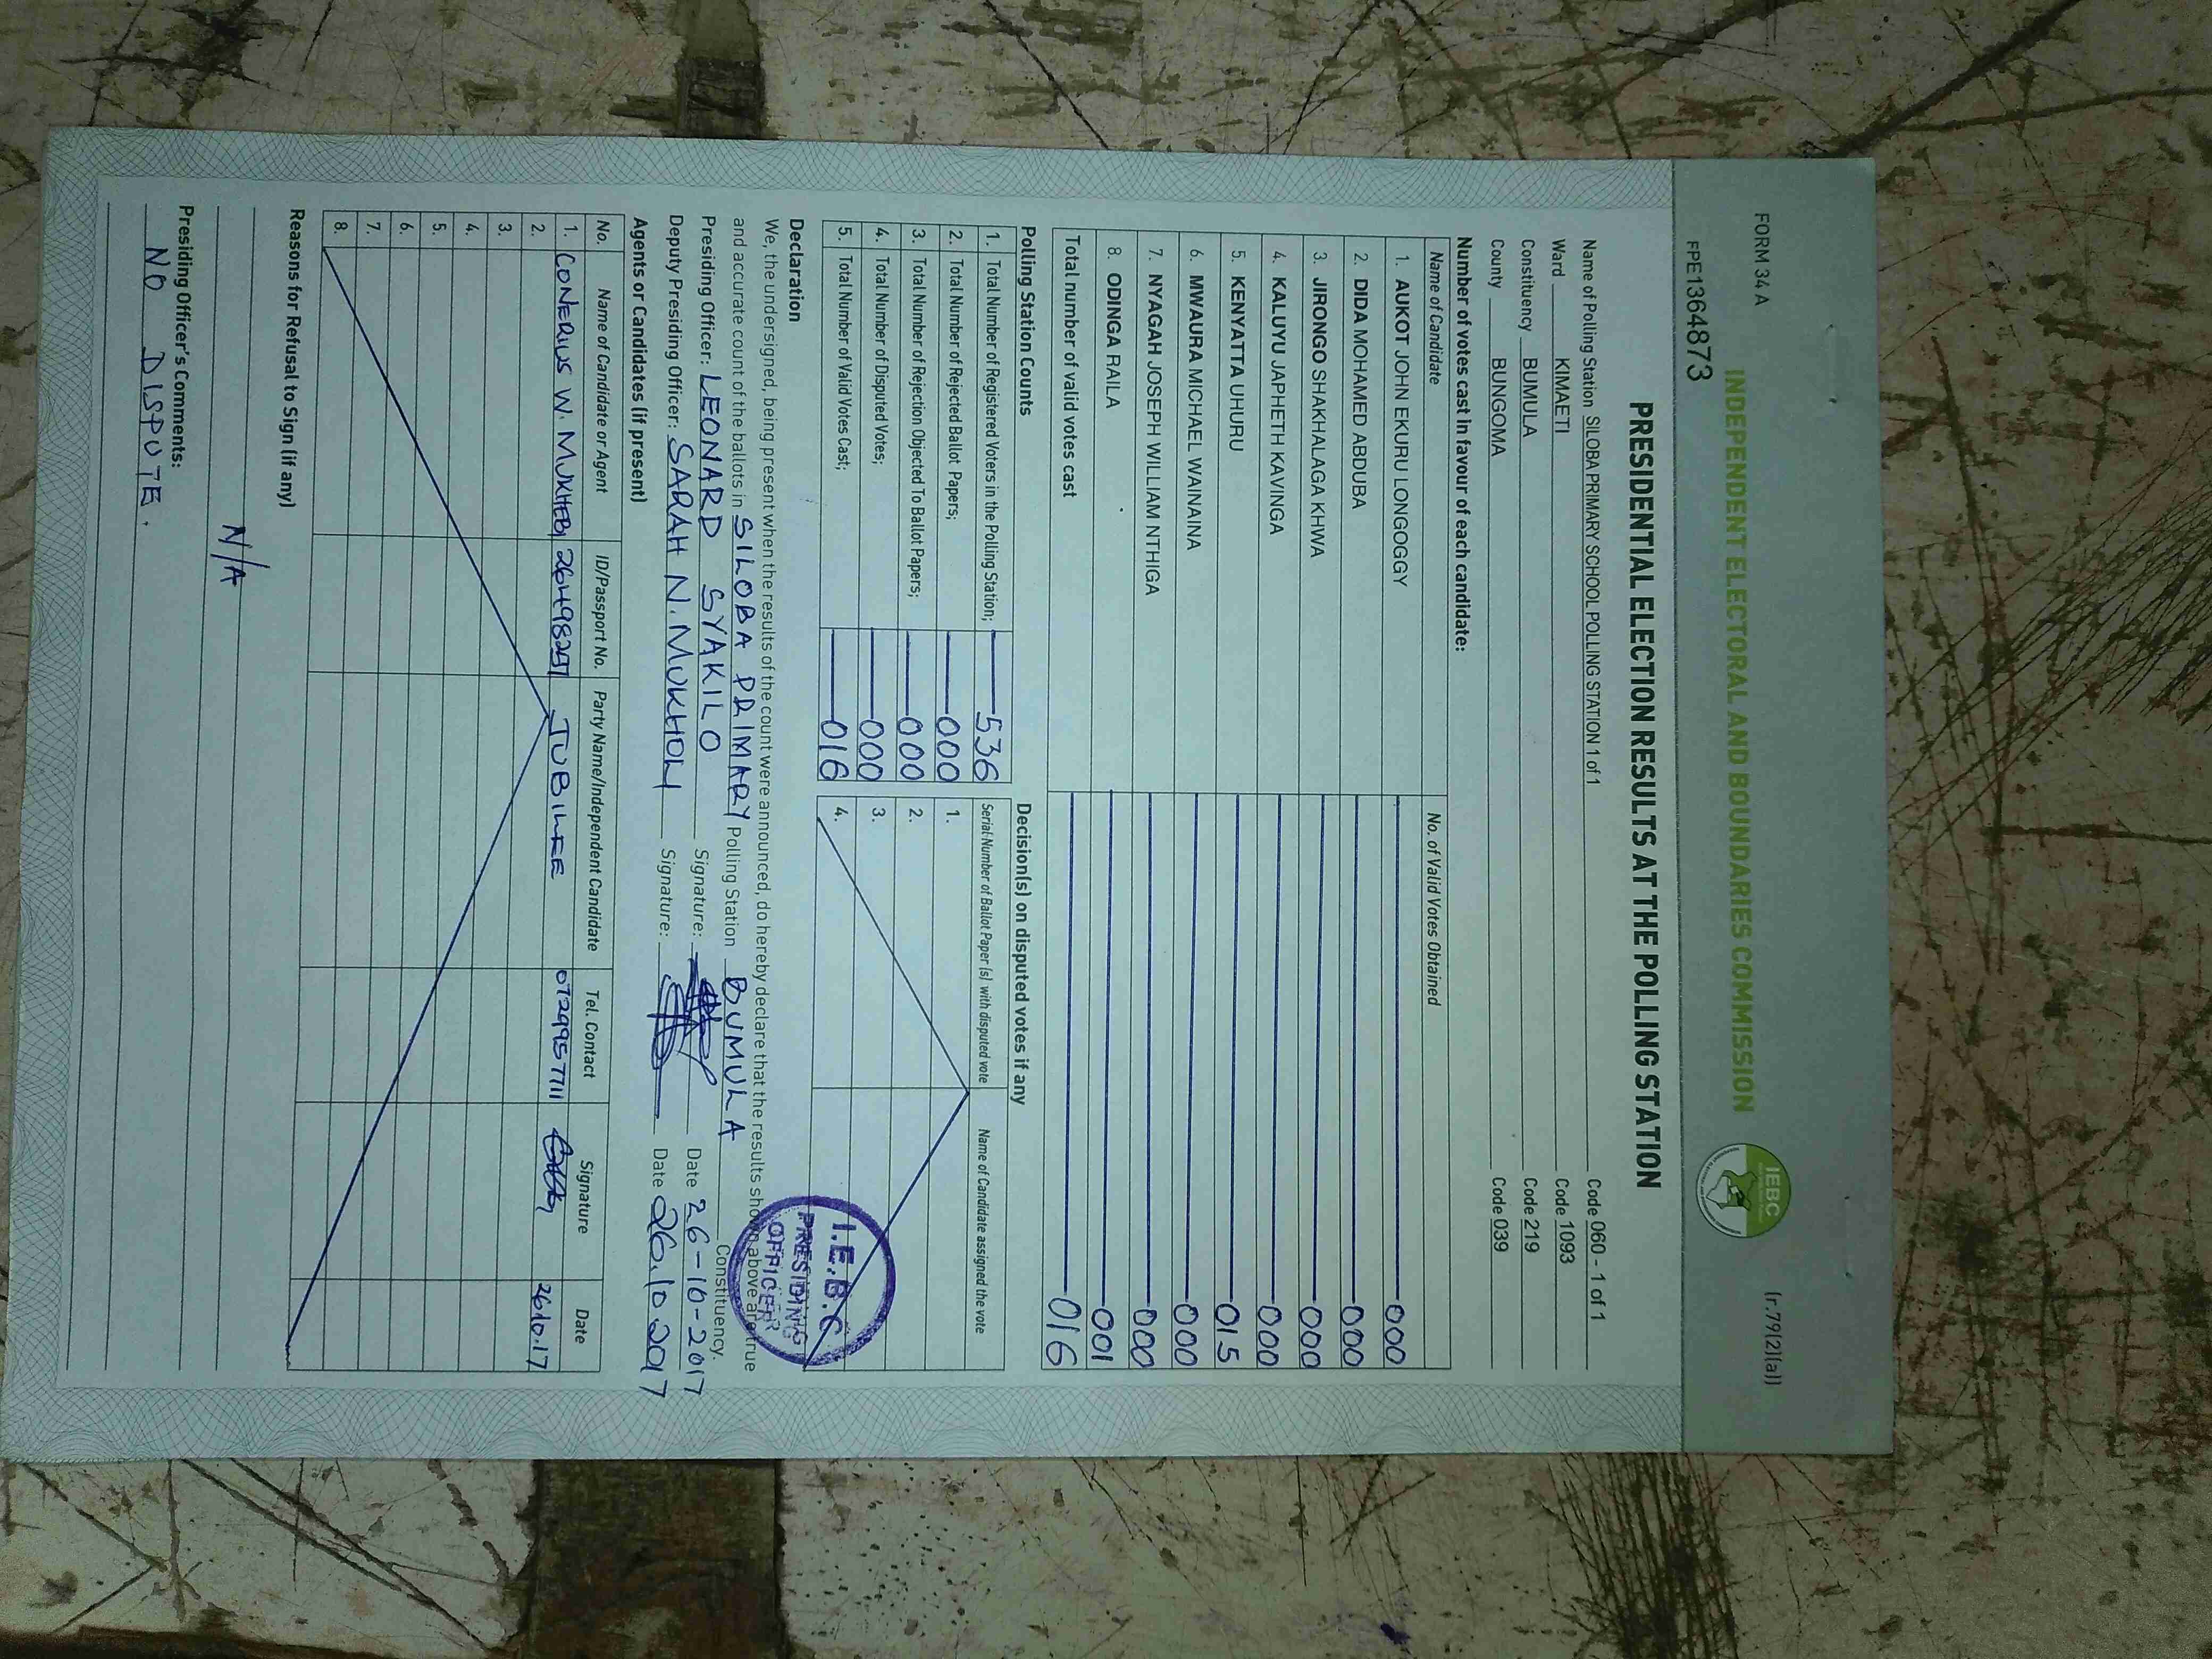 FORM 34 A
(r.79(2)(a))
INDEPENDENT ELECTORAL AND BOUNDARIES COMMISSION
IEBC
FPE1364873
PRESIDENTIAL ELECTION RESULTS AT THE POLLING STATION
Name of Polling Station SILOBA PRIMARY SCHOOL POLLING STATION 1 of 1 Code 060 - 1 of 1
Ward KIMAETI Code 1093
Constituency BUMULA Code 219
County BUNGOMA Code 039
Number of votes cast in favour of each candidate:
Name of Candidate No. of Valid Votes Obtained
1. AUKOT JOHN EKURU LONGOGGY 000
2. DIDA MOHAMED ABDUBA 000
3. JIRONGO SHAKHALAGA KHWA 000
4. KALUYU JAPHETH KAVINGA 000
5. KENYATTA UHURU 015
6. MWAURA MICHAEL WAINAINA 000
7. NYAGAH JOSEPH WILLIAM NTHIGA 000
8. ODINGA RAILA 001
Total number of valid votes cast 016
Polling Station Counts
1. Total Number of Registered Voters in the Polling Station; 536
2. Total Number of Rejected Ballot Papers; 000
3. Total Number of Rejection Objected To Ballot Papers; 000
4. Total Number of Disputed Votes; 000
5. Total Number of Valid Votes Cast; 016
Decision(s) on disputed votes if any
Serial Number of Ballot Paper (s) with disputed vote Name of Candidate assigned the vote
1.
2.
3.
4.
I.E.B.C
PRESIDING
OFFICER
Declaration
We, the undersigned, being present when the results of the count were announced, do hereby declare that the results shown above are true
and accurate count of the ballots in SILOBA PRIMARY Polling Station BUMULA Constituency.
Presiding Officer: LEONARD SYAKILO Signature: Date 26-10-2017
Deputy Presiding Officer: SARAH N. MUKHOLI Signature: Date 26.10.2017
Agents or Candidates (if present)
No. Name of Candidate or Agent ID/Passport No. Party Name/Independent Candidate Tel. Contact Signature Date
1. CONERIUS W. JUBILEE 0729957711 26.10.17
2.
3.
4.
5.
6.
7.
8.
Reasons for Refusal to Sign (if any)
N/A
Presiding Officer's Comments:
NO DISPUTE.